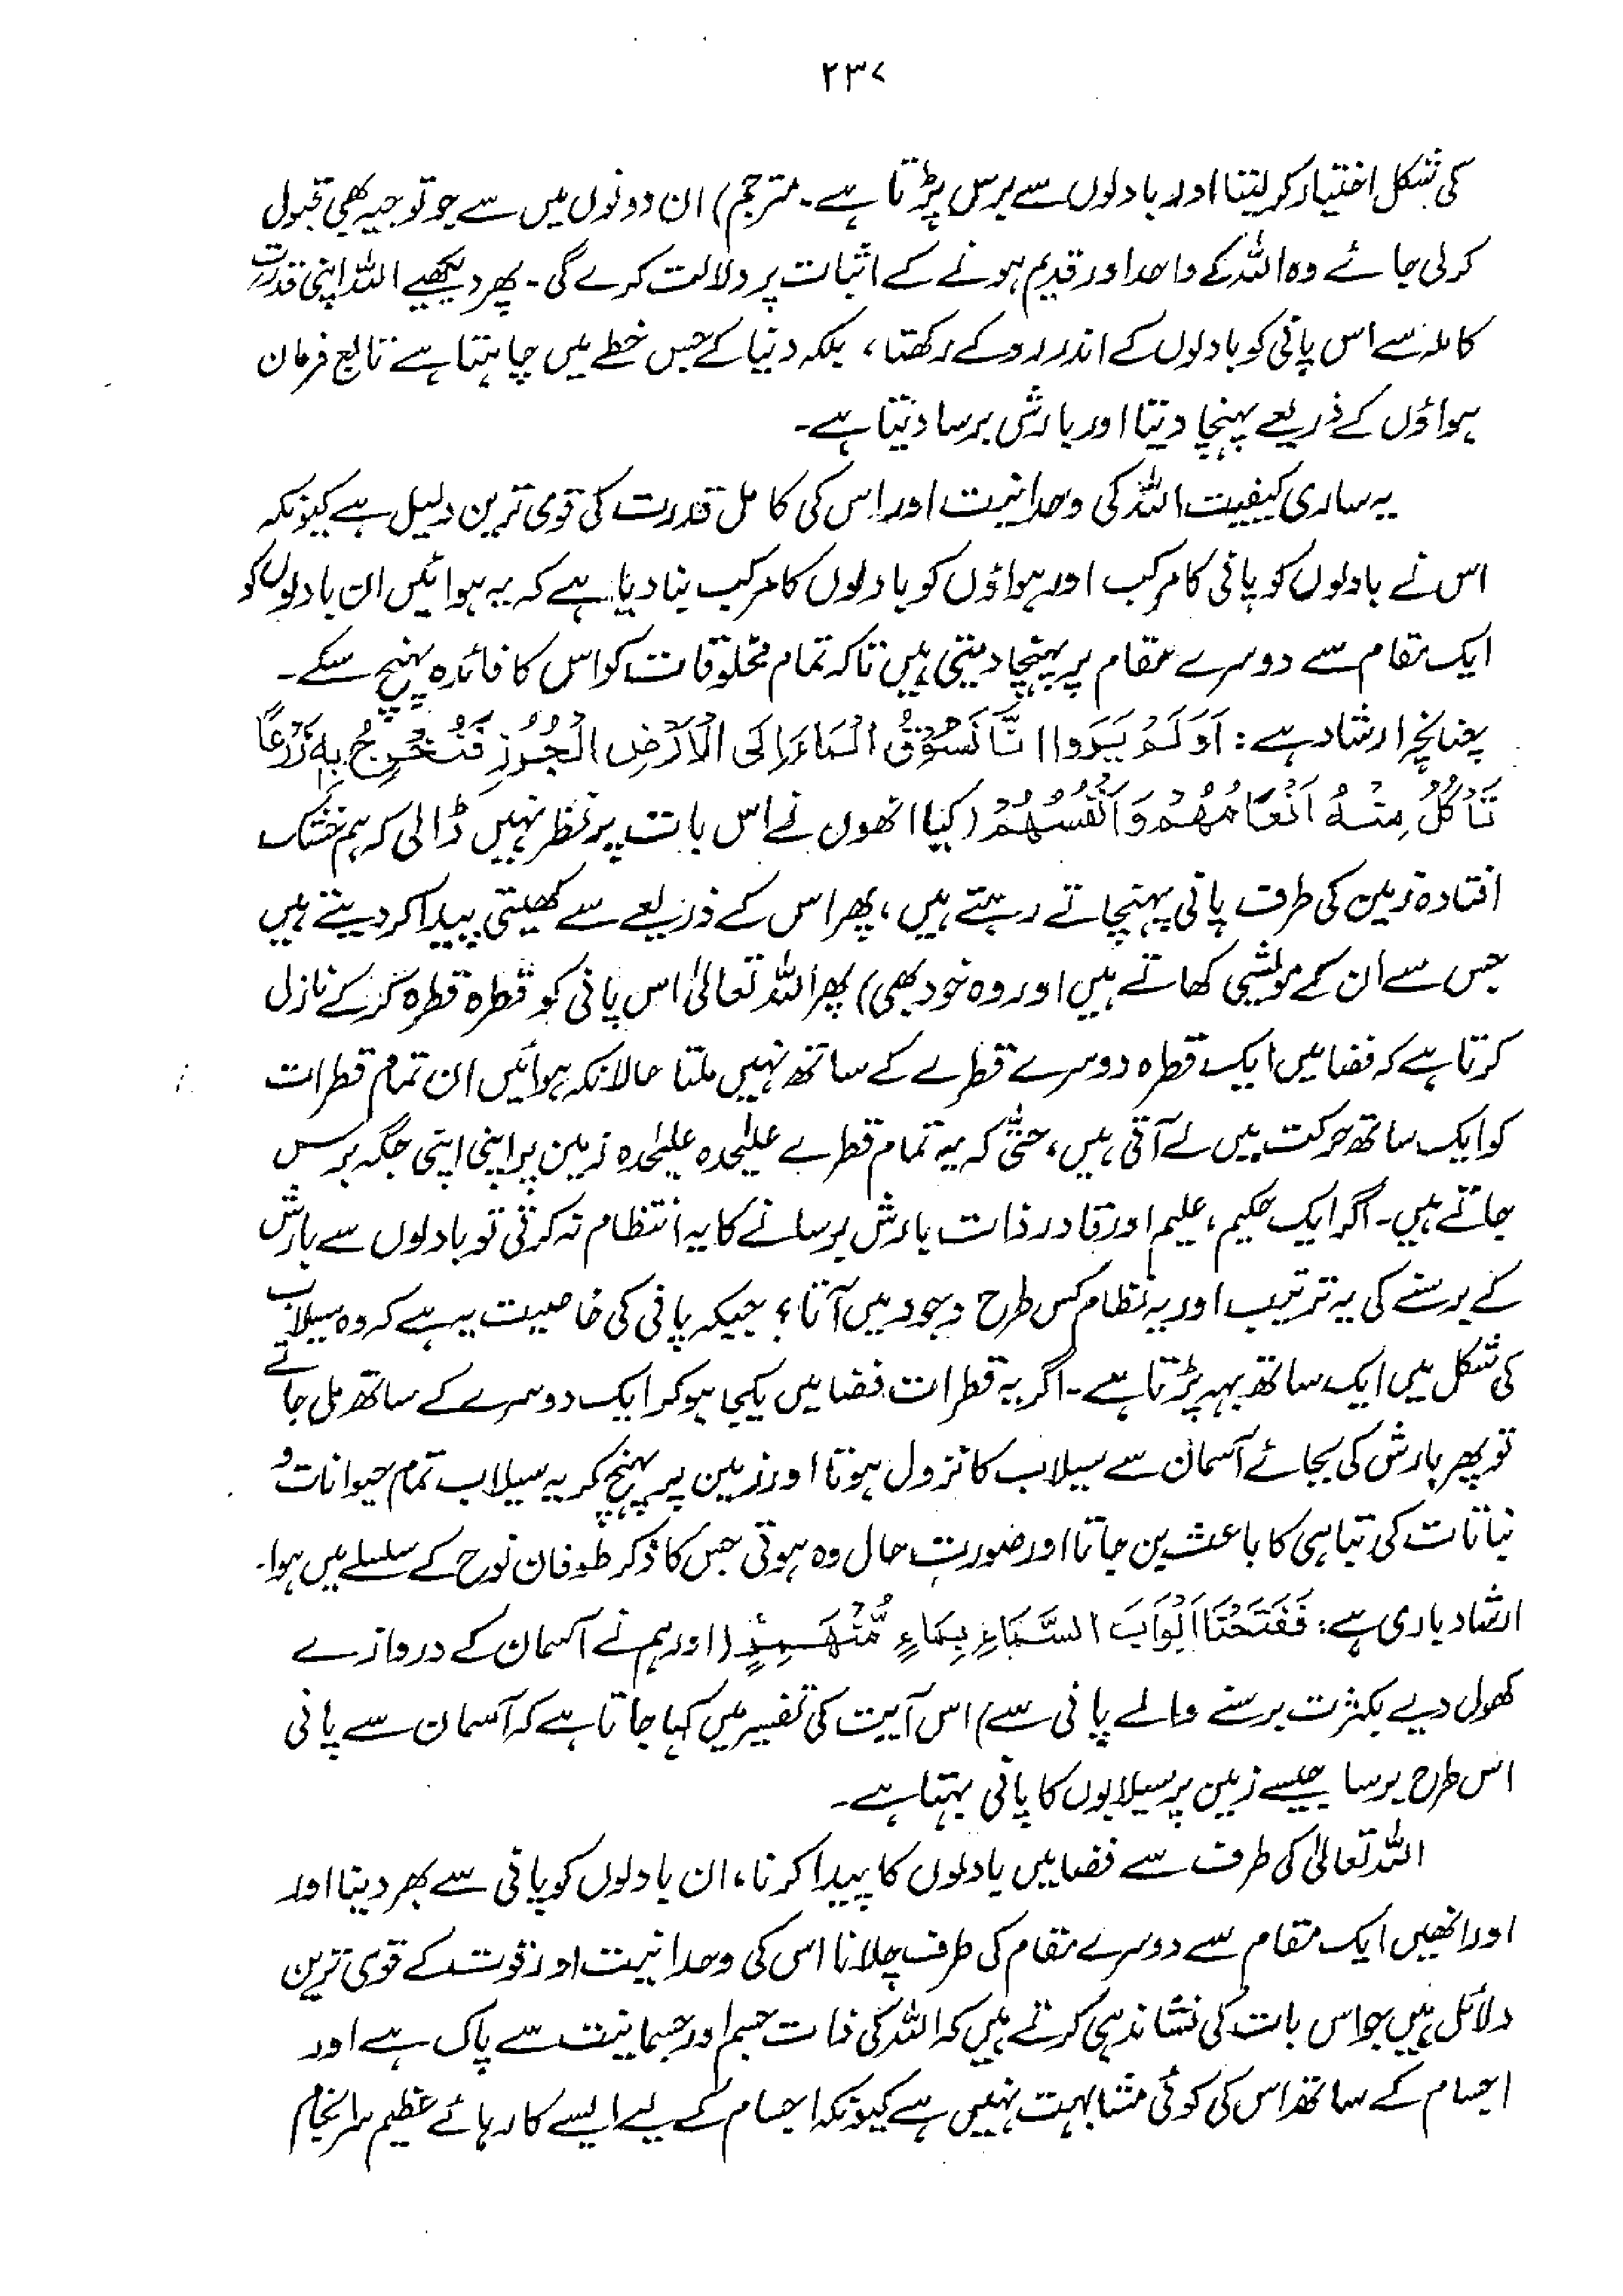 ۲۳۷
کی شکل اختیار کر لیتا اور بادلوں سے برس پڑتا ہے۔ مترجم) ان دونوں میں سے جو توجیہ بھی قبول
کر لی جائے وہ اللہ کے واحد اور قدیم ہونے کے اثبات پر دلالت کرے گی۔ پھر دیکھیے اللہ اپنی قدرت
کاملہ سے اس پانی کو بادلوں کے اندر روکے رکھتا، بلکہ دنیا کے جس خطے میں چاہتا ہے تابع فرمان
ہواؤں کے ذریعے پہنچا دیتا اور بارش برسا دیتا ہے۔
یہ ساری کیفیت اللہ کی وحدانیت اور اس کی کامل قدرت کی قوی ترین دلیل ہے کیونکہ
اس نے بادلوں کو پانی کا مرکب اور ہواؤں کو بادلوں کا مرکب بنا دیا ہے کہ یہ ہوائیں ان بادلوں کو
ایک مقام سے دوسرے مقام پر پہنچا دیتی ہیں تاکہ تمام مخلوقات کو اس کا فائدہ پہنچ سکے۔
چنانچہ ارشاد ہے: اَوَلَمْ یَرَوا اَنَّا نَسُوْقُ الْمَاءَ اِلَی الْاَرْضِ الْجُرُزِ فَنُخْرِجُ بِہٖ زَرْعًا
تَاْکُلُ مِنْہُ اَنْعَامُھُمْ وَاَنْفُسُھُمْ (کیا انھوں نے اس بات پر نظر نہیں ڈالی کہ ہم خشک
افتادہ زمین کی طرف پانی پہنچاتے رہتے ہیں، پھر اس کے ذریعے سے کھیتی پیدا کر دیتے ہیں
جس سے ان کے مویشی کھاتے ہیں اور وہ خود بھی) پھر اللہ تعالیٰ اس پانی کو قطرہ قطرہ کر کے نازل
کرتا ہے کہ فضا میں ایک قطرہ دوسرے قطرے کے ساتھ نہیں ملتا حالانکہ ہوائیں ان تمام قطرات
کو ایک ساتھ حرکت میں لے آتی ہیں، حتّٰی کہ یہ تمام قطرے علیٰحدہ علیٰحدہ زمین پر اپنی اپنی جگہ برس
جاتے ہیں۔ اگر ایک حکیم، علیم اور قادر ذات بارش برسانے کا یہ انتظام نہ کرتی تو بادلوں سے بارش
کے برسنے کی یہ ترتیب اور یہ نظام کس طرح وجود میں آتا؟ جبکہ پانی کی خاصیت یہ ہے کہ وہ سیلاب
کی شکل میں ایک ساتھ بہہ پڑتا ہے۔ اگر یہ قطرات فضا میں یکجا ہو کر ایک دوسرے کے ساتھ مل جاتے
تو پھر بارش کی بجائے آسمان سے سیلاب کا نزول ہوتا اور زمین پر پہنچ کر یہ سیلاب تمام حیوانات و
نباتات کی تباہی کا باعث بن جاتا اور صورت حال وہ ہوتی جس کا ذکر طوفان نوح کے سلسلے میں ہوا۔
ارشاد باری ہے: فَفَتَحْنَا اَبْوَابَ السَّمَاءِ بِمَاءٍ مُّنْھَمِرٍ (اور ہم نے آسمان کے دروازے
کھول دیے بکثرت برسنے والے پانی سے) اس آیت کی تفسیر میں کہا جاتا ہے کہ آسمان سے پانی
اس طرح برسا جیسے زمین پر سیلابوں کا پانی بہتا ہے۔
اللہ تعالیٰ کی طرف سے فضا میں بادلوں کا پیدا کرنا، ان بادلوں کو پانی سے بھر دینا اور
اور انھیں ایک مقام سے دوسرے مقام کی طرف چلانا اس کی وحدانیت اور قوت کے قوی ترین
دلائل ہیں جو اس بات کی نشاندہی کرتے ہیں کہ اللہ کی ذات جسم اور جسمانیت سے پاک ہے اور
اجسام کے ساتھ اس کی کوئی مشابہت نہیں ہے کیونکہ اجسام کے لیے ایسے کارہائے عظیم سرانجام